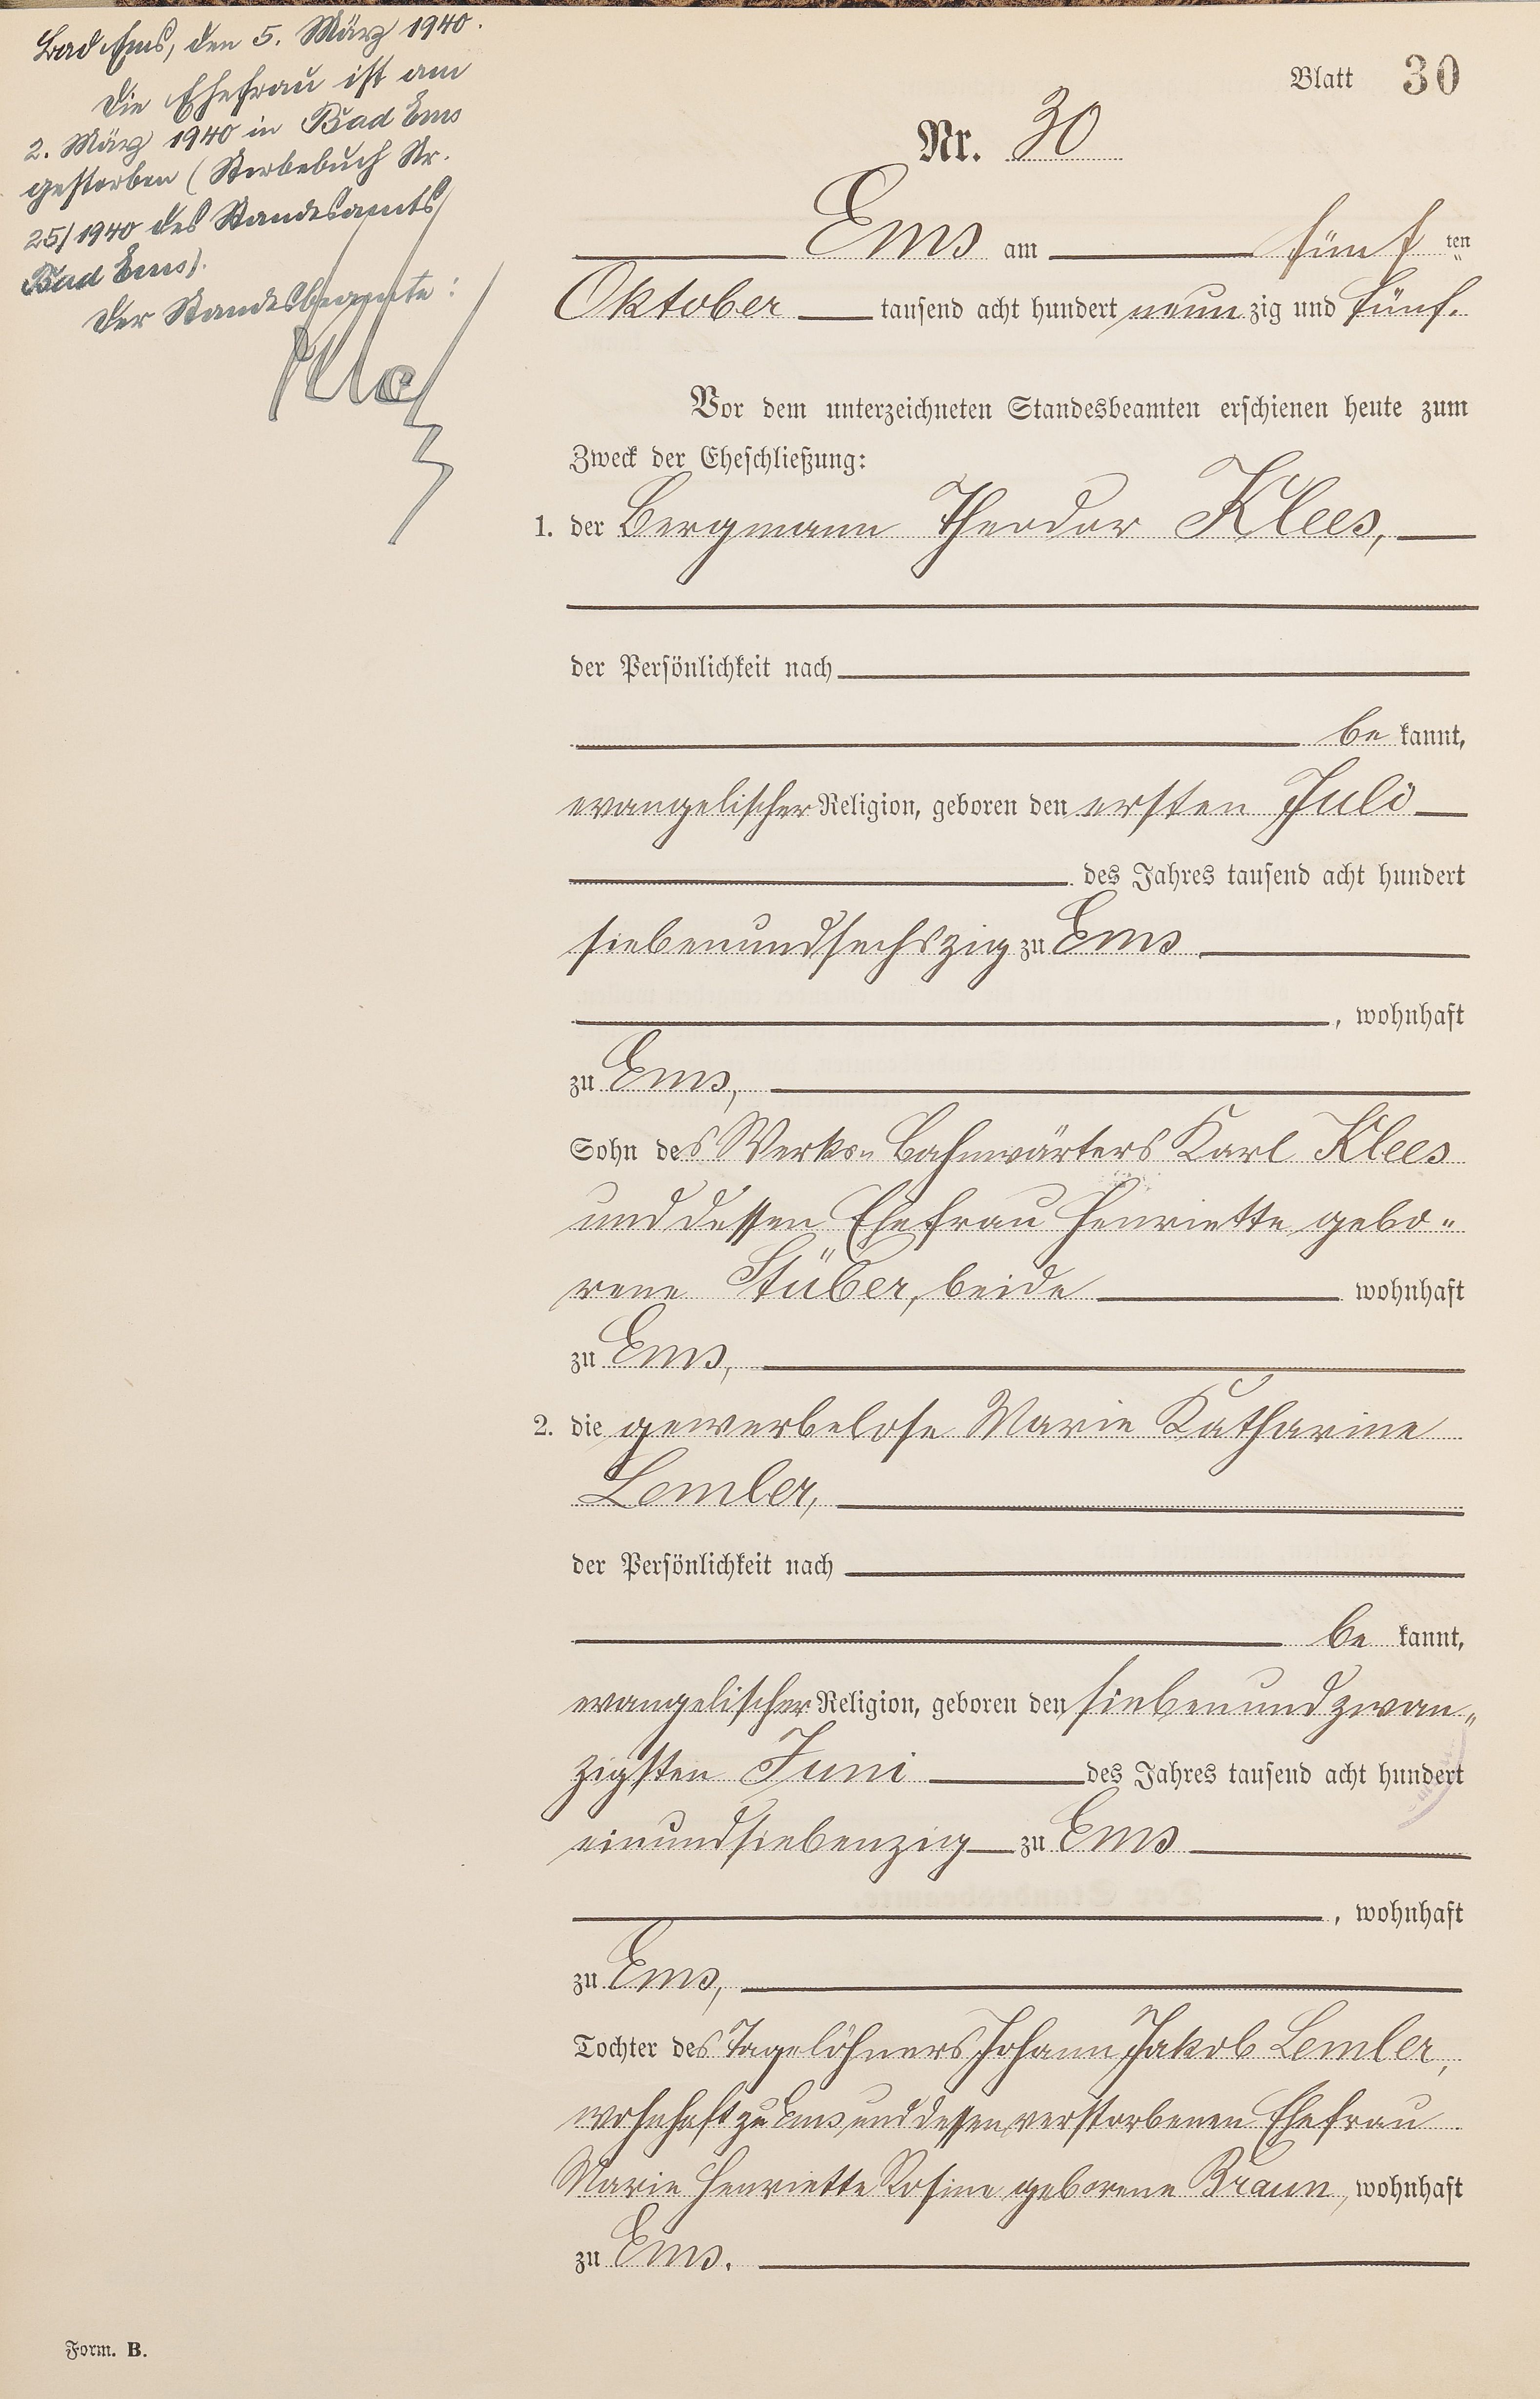 Bad Ems, den 5. März 1940.
Die Ehefrau ist am
2. März 1940 in Bad Ems
gestorben (Sterbebuch Nr.
25/1940 des Standesamts
Bad Ems).
Der Standesbeamte:
Blatt 30
Nr. 30
Ems am fünf ten
Oktober tausend acht hundert neunzig und fünf.
Vor dem unterzeichneten Standesbeamten erschienen heute zum
Zweck der Eheschließung:
1. der Bergmann Theodor Klees,
der Persönlichkeit nach
be kannt,
evangelischer Religion, geboren den ersten Juli
des Jahres tausend acht hundert
siebenundsechszig zu Ems
, wohnhaft
zu Ems,
Sohn des Werks-Bahnwärters Karl Klees
und dessen Ehefrau Henriette gebo-
rene Stüber, beide wohnhaft
zu Ems,
2. die gewerbelose Marie Katharine
Lemler,
der Persönlichkeit nach
be kannt,
evangelischer Religion, geboren den siebenundzwan-
zigsten Juni des Jahres tausend acht hundert
einundsiebenzig zu Ems
, wohnhaft
zu Ems,
Tochter des Tagelöhners Johann Jakob Lemler,
wohnhaft zu Ems und dessen verstorbenen Ehefrau
Marie Henriette Rosine geborene Braun, wohnhaft
zu Ems.
Form. B.